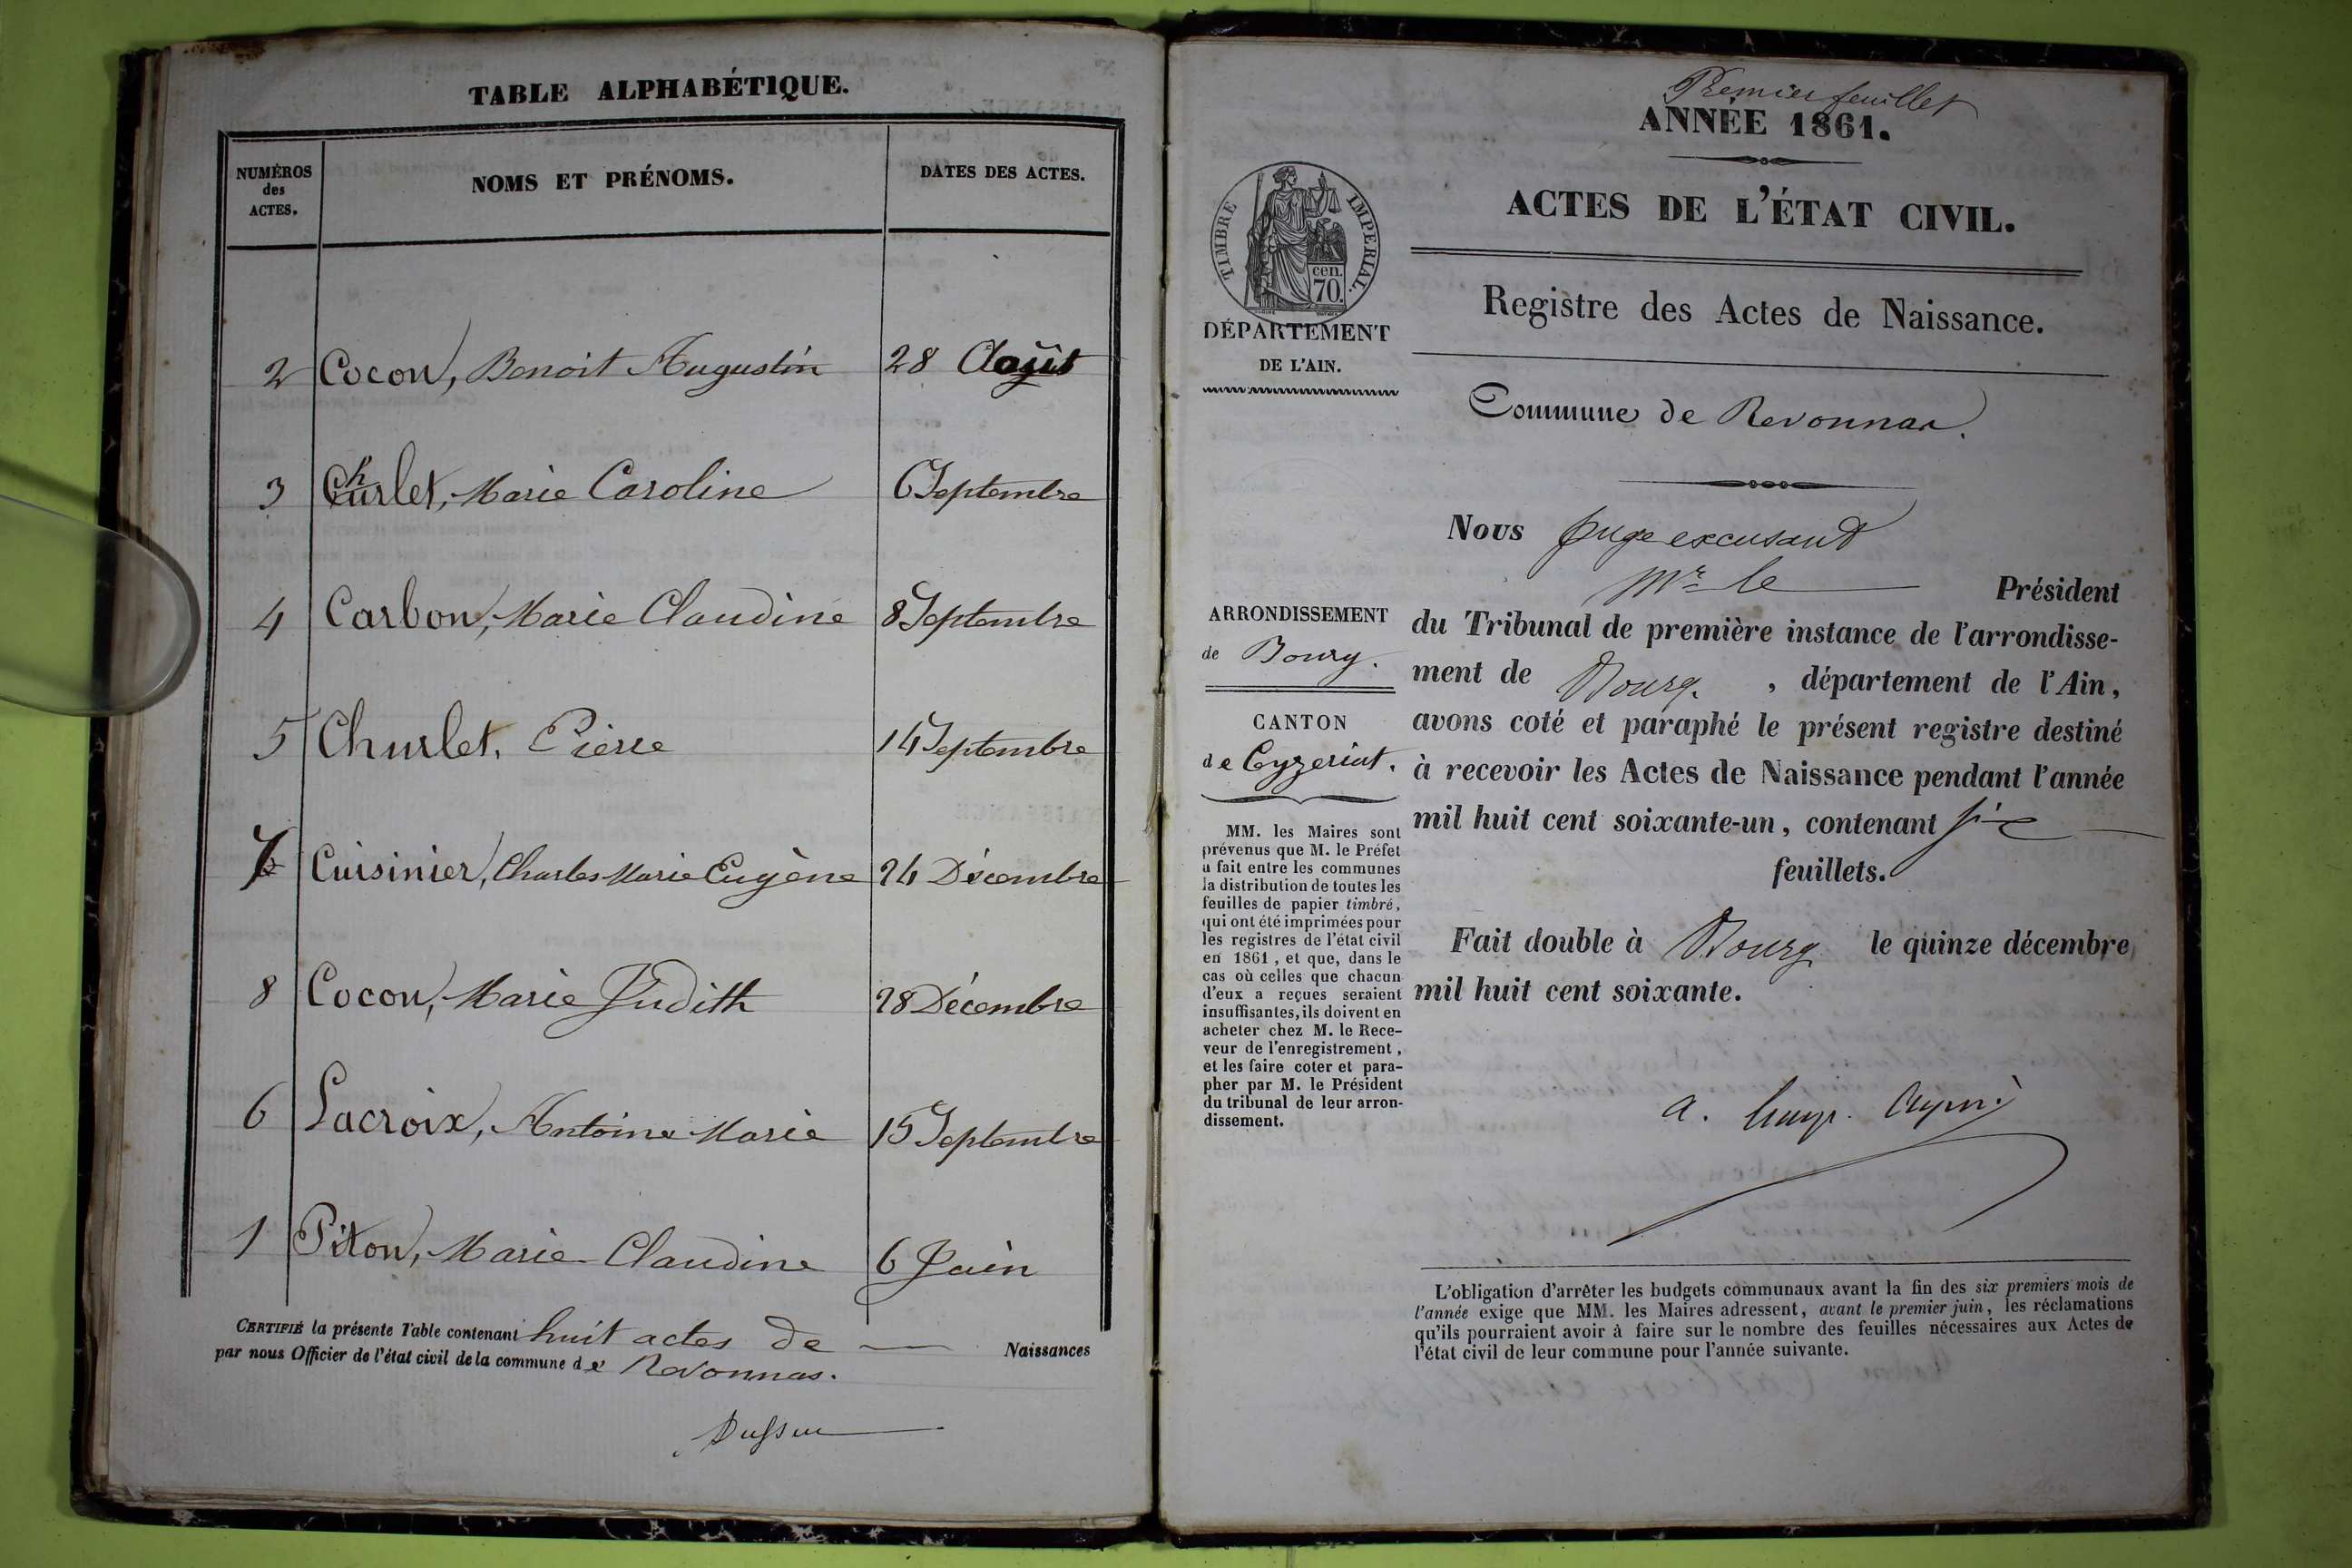 TABLE ALPHABÉTIQUE.
NUMÉROS des ACTES. NOMS ET PRÉNOMS. DATES DES ACTES.
2 Cocon, Benoit Augustin 28 Août
3 Churlet, Marie Caroline 6 Septembre
4 Carbon, Marie Claudine 8 Septembre
5 Churlet, Pierre 14 Septembre
7 Cuisinier, Charles Marie Eugène 24 Décembre
8 Cocon, Marie Judith 28 Décembre
6 Lacroix, Antoine Marie 15 Septembre
1 Piton, Marie Claudine 6 Juin
CERTIFIÉ la présente Table contenant huit actes de Naissances
par nous Officier de l'état civil de la commune de Revonnas.
Premier feuillet
ANNÉE 1861.
ACTES DE L'ÉTAT CIVIL.
TIMBRE IMPERIAL.
cen.
70.
DÉPARTEMENT
DE L'AIN.
Registre des Actes de Naissance.
Commune de Revonnas.
Nous Juge excusant
Mr le Président
ARRONDISSEMENT
de Bourg.
CANTON
de Ceyzeriat.
du Tribunal de première instance de l'arrondisse-
ment de Bourg. , département de l'Ain,
avons coté et paraphé le présent registre destiné
à recevoir les Actes de Naissance pendant l'année
mil huit cent soixante-un, contenant six
feuillets.
Fait double à Bourg le quinze décembre
mil huit cent soixante.
MM. les Maires sont
prévenus que M. le Préfet
a fait entre les communes
la distribution de toutes les
feuilles de papier timbré,
qui ont été imprimées pour
les registres de l'état civil
en 1861, et que, dans le
cas où celles que chacun
d'eux a reçues seraient
insuffisantes, ils doivent en
acheter chez M. le Rece-
veur de l'enregistrement,
et les faire coter et para-
pher par M. le Président
du tribunal de leur arron-
dissement.
L'obligation d'arrêter les budgets communaux avant la fin des six premiers mois de
l'année exige que MM. les Maires adressent, avant le premier juin, les réclamations
qu'ils pourraient avoir à faire sur le nombre des feuilles nécessaires aux Actes de
l'état civil de leur commune pour l'année suivante.